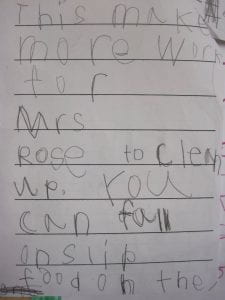 This make
more work
for
Mrs
Rose to clean
up. You
can fall
on slip
food on the